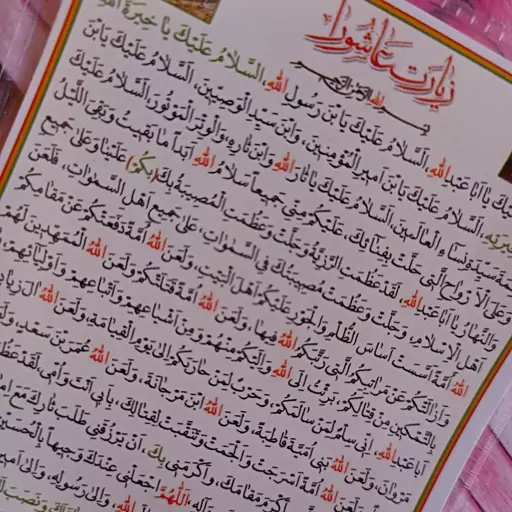 زیارت عاشورا
بسم الله الرحمن الرحیم
اَلسَّلامُ عَلَيْكَ يا خِيَرَةَ
عَلَيْكَ يَا اَبا عَبْدِ اللهِ، اَلسَّلامُ عَلَيْكَ يَا بْنَ رَسُولِ اللهِ
خِيَرَتِهِ، اَلسَّلامُ عَلَيْكَ يَا بْنَ اَميرِ الْمُؤْمِنينَ، وَابْنَ سَيِّدِ الْوَصِيّينَ، اَلسَّلامُ عَلَيْكَ يَابْنَ
سَيِّدَةِ نِساءِ الْعالَمينَ، اَلسَّلامُ عَلَيْكَ يا ثارَ اللهِ وَابْنَ ثارِهِ، وَالْوِتْرَ الْمَوْتُورَ، اَلسَّلامُ عَلَيْكَ
وَعَلَى الْاَرْواحِ الَّتي حَلَّتْ بِفِنائِكَ، عَلَيْكُمْ مِنّي جَميعاً سَلامُ اللهِ اَبَداً ما بَقيتُ وَبَقِيَ اللَّيْلُ
وَالنَّهارُ يا اَبا عَبْدِ اللهِ، لَقَدْ عَظُمَتِ الرَّزِيَّةُ وَجَلَّتْ وَعَظُمَتِ الْمُصيبَةُ بِكَ (بِكُمْ) عَلَيْنا وَعَلى جَميعِ
اَهْلِ الْاِسْلامِ، وَجَلَّتْ وَعَظُمَتْ مُصيبَتُكَ فِي السَّماواتِ، عَلى جَميعِ اَهْلِ السَّماواتِ، فَلَعَنَ
اللهُ اُمَّةً اَسَّسَتْ اَساسَ الظُّلْمِ وَالْجَوْرِ عَلَيْكُمْ اَهْلَ الْبَيْتِ، وَلَعَنَ اللهُ اُمَّةً دَفَعَتْكُمْ عَنْ مَقامِكُمْ
وَاَزالَتْكُمْ عَنْ مَراتِبِكُمُ الَّتي رَتَّبَكُمُ اللهُ فيها، وَلَعَنَ اللهُ اُمَّةً قَتَلَتْكُمْ وَلَعَنَ اللهُ الْمُمَهِّدينَ لَهُمْ
بِالتَّمْكينِ مِنْ قِتالِكُمْ، بَرِئْتُ اِلَى اللهِ وَاِلَيْكُمْ مِنْهُمْ وَمِنْ اَشْياعِهِمْ وَاَتْباعِهِمْ وَاَوْلِيائِهِمْ
اَبا عَبْدِ اللهِ، اِنّي سِلْمٌ لِمَنْ سالَمَكُمْ، وَحَرْبٌ لِمَنْ حارَبَكُمْ اِلى يَوْمِ الْقِيامَةِ، وَلَعَنَ اللهُ آلَ زِيادٍ
مَرْوانَ، وَلَعَنَ اللهُ بَني اُمَيَّةَ قاطِبَةً، وَلَعَنَ اللهُ ابْنَ مَرْجانَةَ، وَلَعَنَ اللهُ عُمَرَ بْنَ سَعْدٍ،
وَلَعَنَ اللهُ اُمَّةً اَسْرَجَتْ وَاَلْجَمَتْ وَتَنَقَّبَتْ لِقِتالِكَ، بِاَبي اَنْتَ وَاُمّي، لَقَدْ عَظُمَ
اَكْرَمَ مَقامَكَ، وَاَكْرَمَني بِكَ، اَنْ يَرْزُقَني طَلَبَ ثارِكَ مَعَ
وَآلِهِ، اَللّهُمَّ اجْعَلْني عِنْدَكَ وَجيهاً بِالْحُسَيْنِ
اللهِ، وَاِلى رَسُولِهِ، وَاِلى اَميرِ